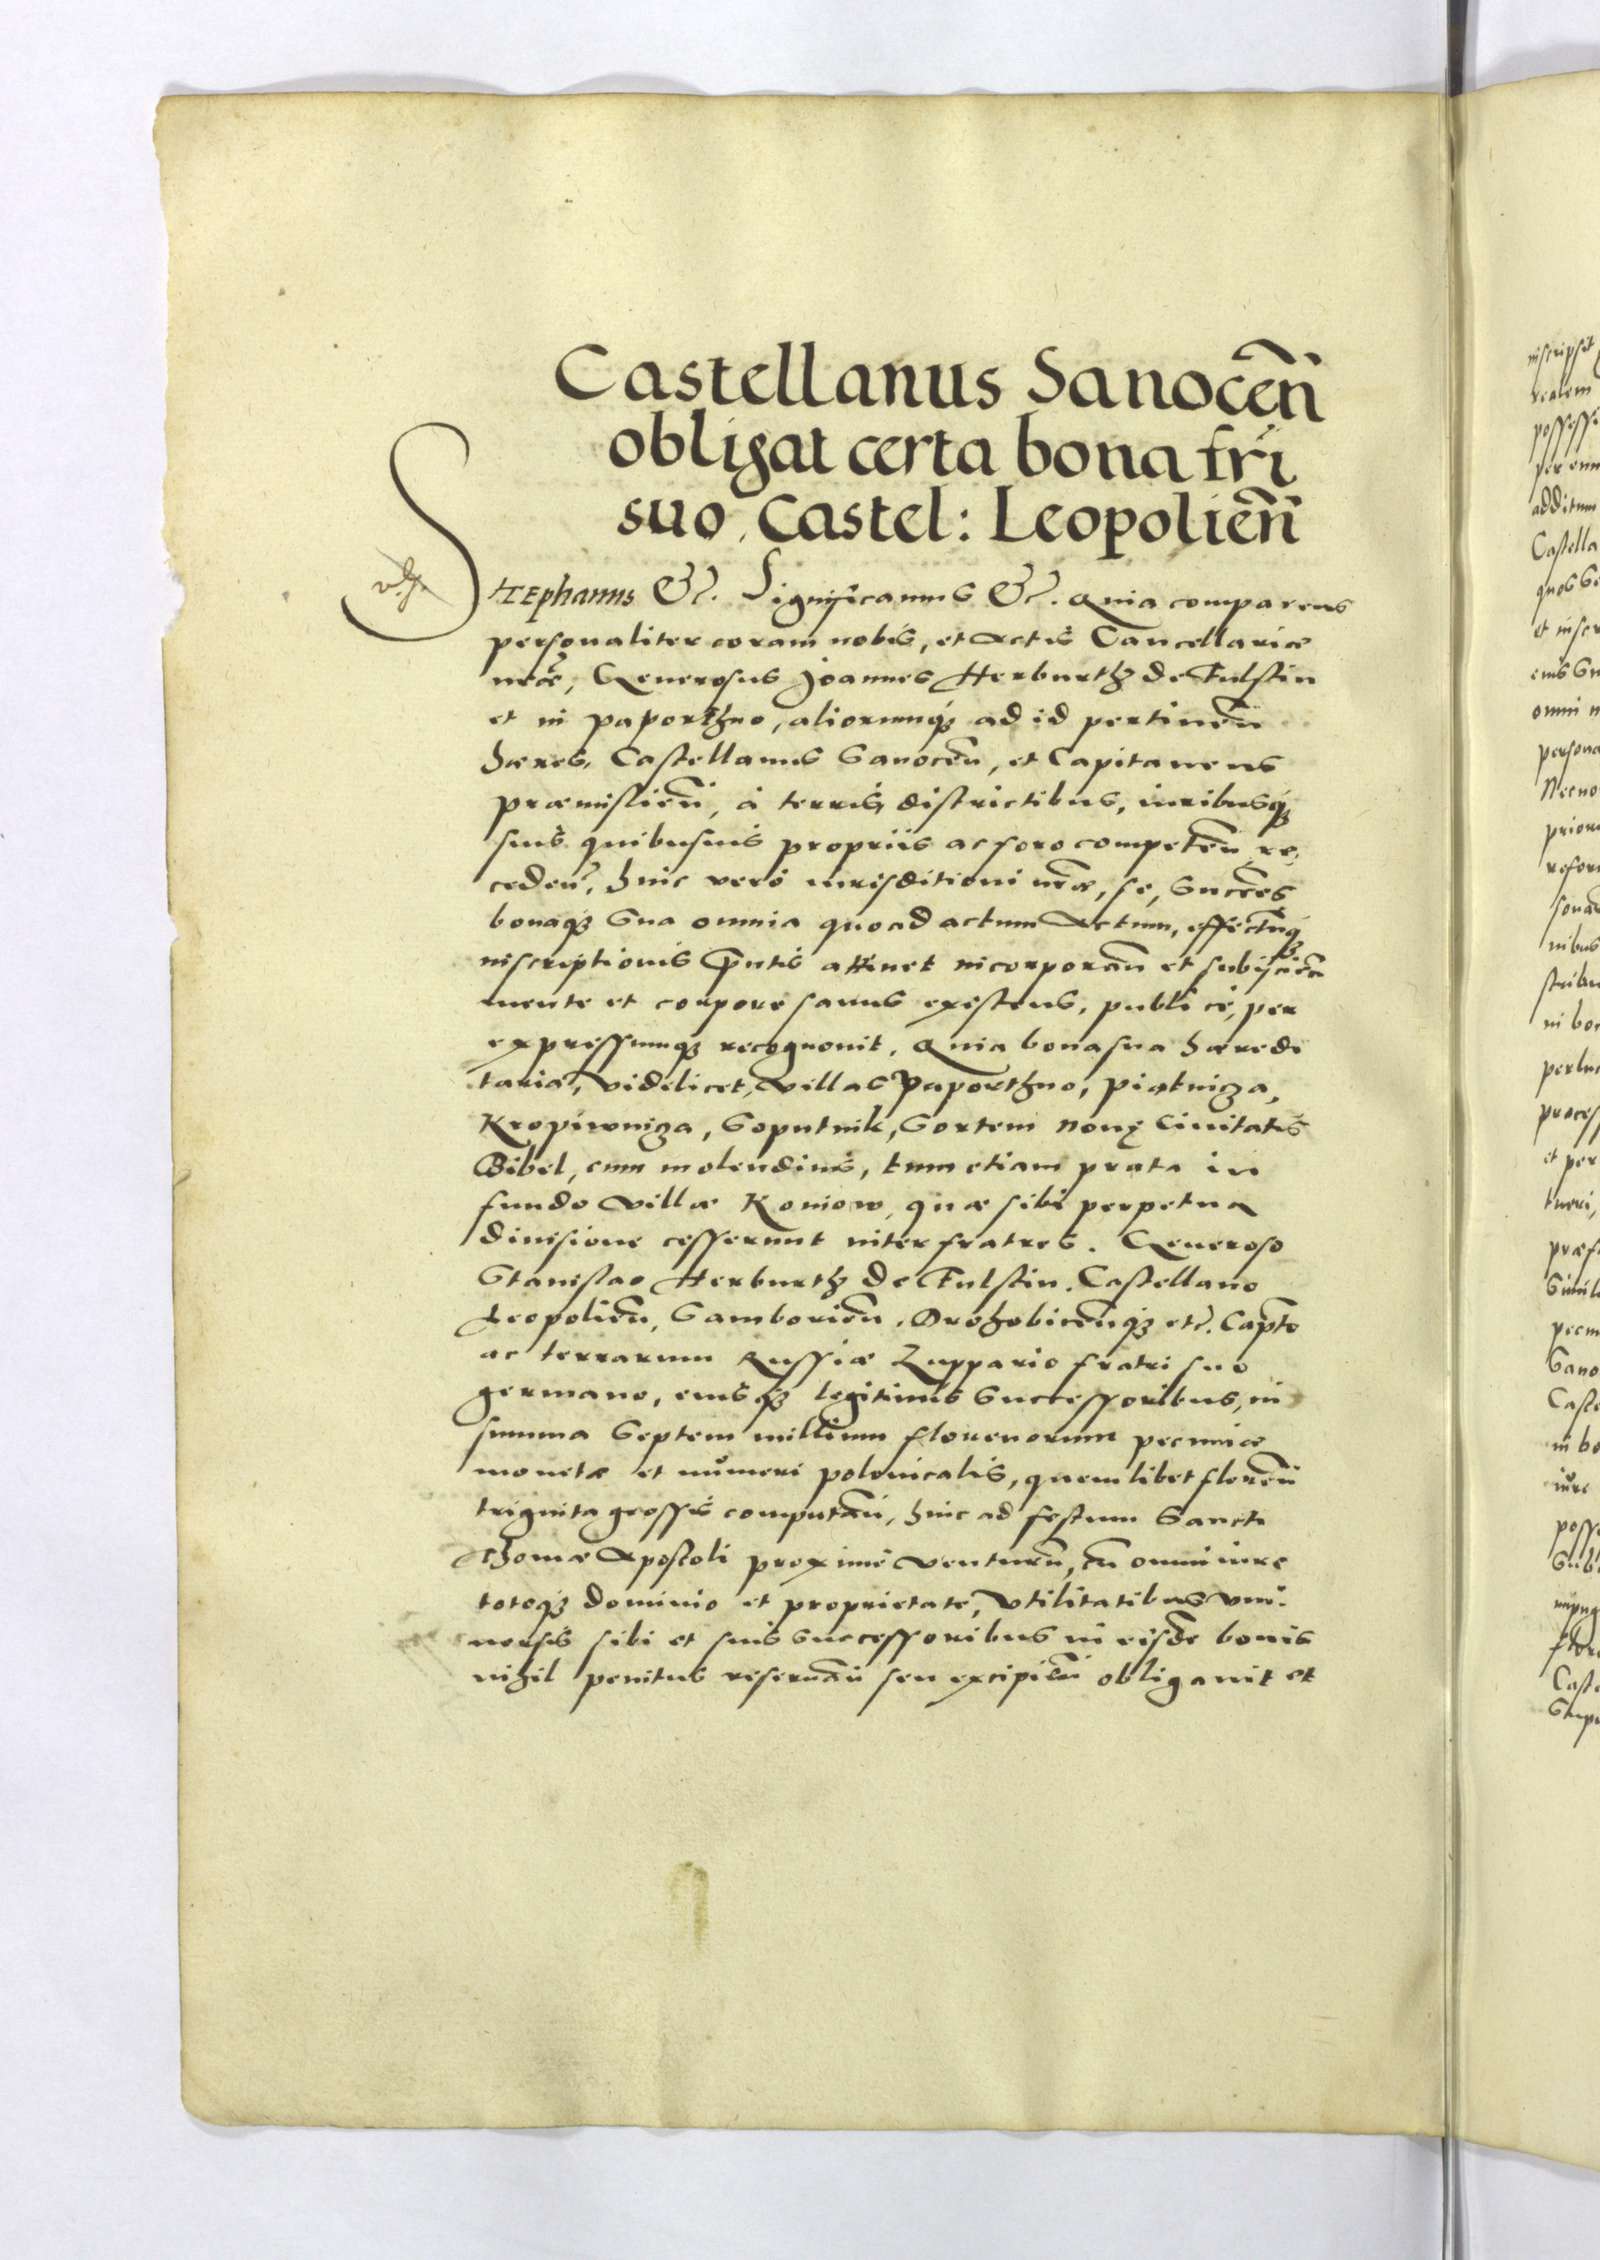 Castellanus Sanoceñ
obligat certa bona fr̃i
suo, Castel: Leopolieñ
STEphanus &c. Significamus &c. Quia comparens
personaliter coram nobis, et Actis Cancellariæ
nr̃æ, Generosus Joannes Herburth de Fulstin
et in paporthno, aliorumq; ad id pertineñ
hæres, Castellanus Sanoceñ, et Capitaneus
præmislieñ, à terris, districtibus, iuribusq;
suis quibusuis propriis ac foro competeñ, re,
cedeñ, huic verò iurisditioni nr̃æ, se, Succes̃es
bonaq; Sua omnia quo ad actum Actum, effectuq;
inscriptionis p̃ntis attinet incorporañ et subijcieñ
mente et corpore sanus existens, publicè, per
expressumq; recognouit. Quia bona sua hæredi
taria, videlicet, villas Paporthno, piątnicza,
Kropiwnicza, Soputnik, Sortem nouę Ciuitatis
Bibel, cum molendinis, tum etiam prata in
fundo villæ Koniow, quæ sibi perpetua
diuisione cesserunt inter fratres. Generoso
Stanislao Herburth de Fulstin. Castellano
Leopolieñ, Samborieñ, Drohobiceñq; etc. Capto
ac terrarum Russiæ Zuppario fratri suo
germano, eiusq; legitimis Successoribus, in
summa Septem millium florenorum pecuniæ
monetæ et numeri polonicalis, quemlibet floreñ
triginta grossis computañ, hinc ad festum Sancti
Thomæ Apostoli proximè venturũ, cũ omni iure
totoq; dominio et proprietate, vtilitatibus vni-
uersis sibi et suis successoribus in eisdẽ bonis
nihil penitus reseruañ seu excipieñ obligauit et
inscripsit
realem
possessi
per eun
additum
Castella
quos Se
et inscr
eius Su
omni
persona
Necno
priori
refor
nibus
in bo
perlu
process
et per
tueri,
præf
Simil
pecun
Sano
Caste
in bo
iure
posse
Sub
impug
flore
Caste